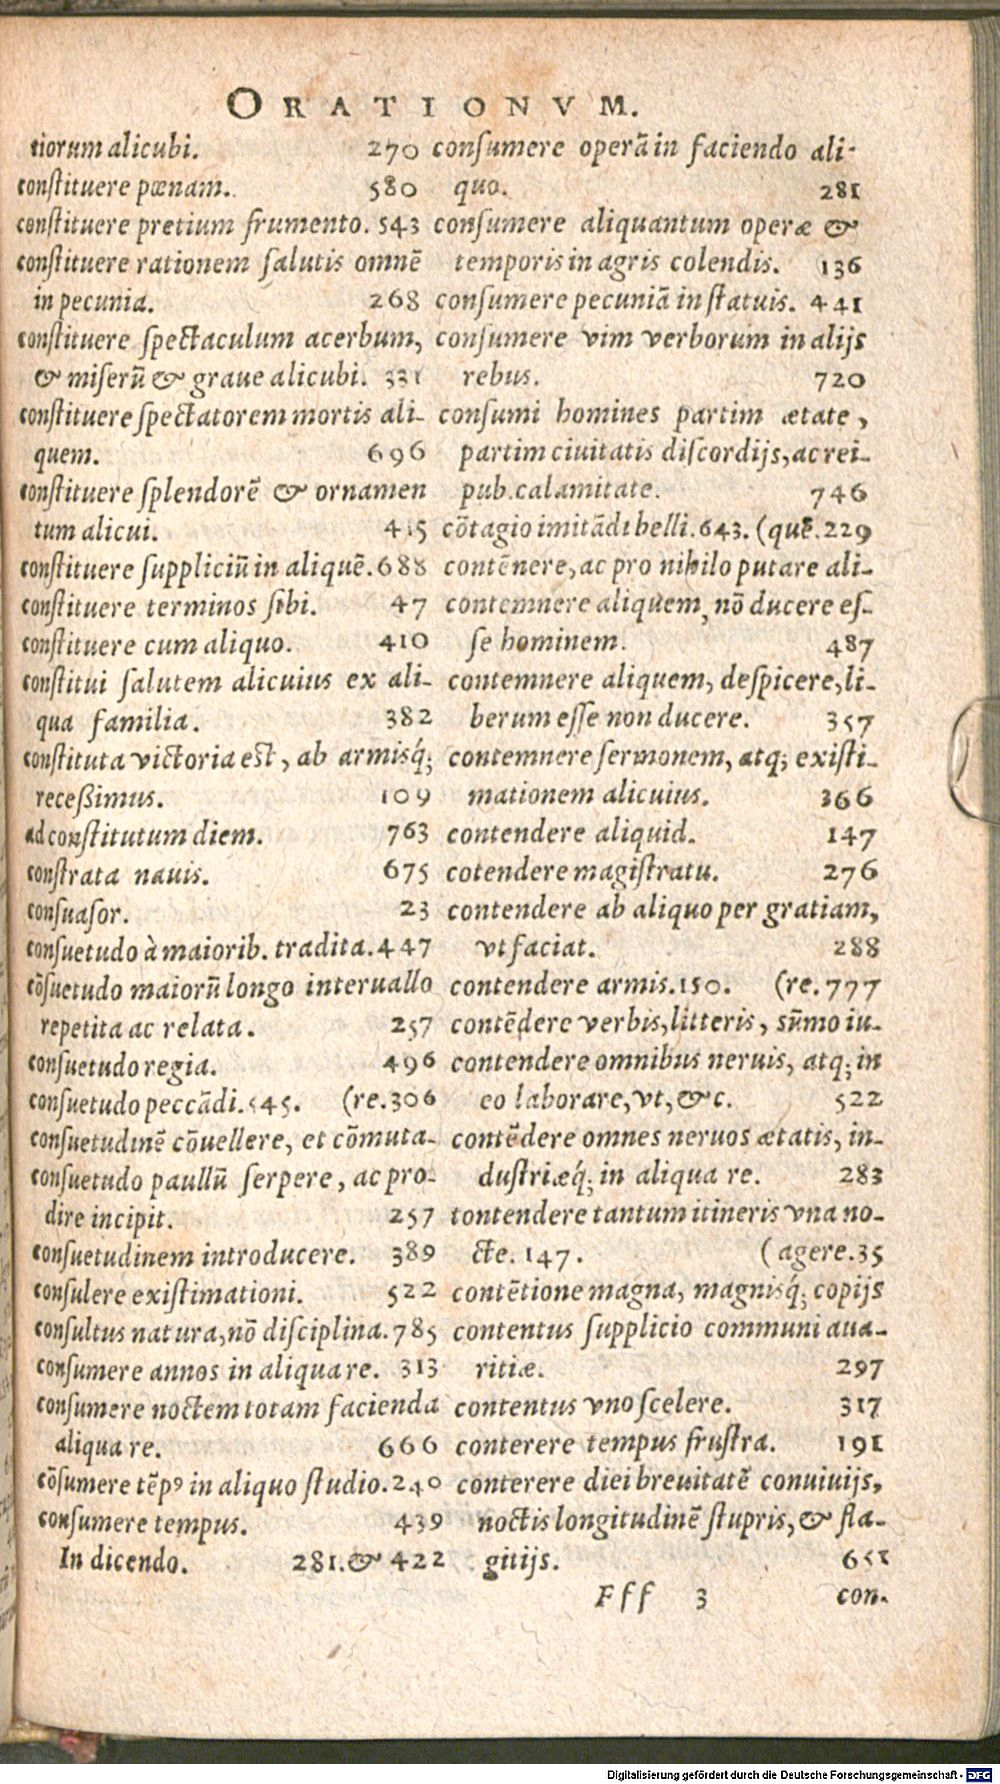 ORATIONVM.
tiorum alicubi. 270
constituere pœnam. 580
constituere pretium frumento. 543
constituere rationem salutis omnē
in pecunia. 268
constituere spectaculum acerbum,
& miserū & graue alicubi. 331
constituere spectatorem mortis ali-
quem. 696
constituere splendorē & ornamen
tum alicui. 415
constituere suppliciū in aliquē. 688
constituere terminos sibi. 47
constituere cum aliquo. 410
constitui salutem alicuius ex ali-
qua familia. 382
constituta victoria est, ab armisq́;
receßimus. 109
ad constitutum diem. 763
constrata nauis. 675
consuasor. 23
consuetudo à maiorib. tradita. 447
cōsuetudo maiorū longo interuallo
repetita ac relata. 257
consuetudo regia. 496
consuetudo peccādi. 545. (re. 306
consuetudinē cōuellere, et cōmuta-
consuetudo paullū serpere, ac pro-
dire incipit. 257
consuetudinem introducere. 389
consulere existimationi. 522
consultus natura, nō disciplina. 785
consumere annos in aliqua re. 313
consumere noctem totam facienda
aliqua re. 666
cōsumere tēpꝰ in aliquo studio. 240
consumere tempus. 439
In dicendo. 281. & 422
consumere operā in faciendo ali-
quo. 281
consumere aliquantum operæ &
temporis in agris colendis. 136
consumere pecuniā in statuis. 441
consumere vim verborum in alijs
rebus. 720
consumi homines partim ætate,
partim ciuitatis discordijs, ac rei-
pub. calamitate. 746
cōtagio imitādi belli. 643. (quē. 229
contēnere, ac pro nihilo putare ali-
contemnere aliquem, nō ducere es-
se hominem. 487
contemnere aliquem, despicere, li-
berum esse non ducere. 357
contemnere sermonem, atq; existi-
mationem alicuius. 366
contendere aliquid. 147
cotendere magistratu. 276
contendere ab aliquo per gratiam,
vt faciat. 288
contendere armis. 150. (re. 777
contēdere verbis, litteris, sūmo iu-
contendere omnibus neruis, atq; in
eo laborare, vt, &c. 522
contēdere omnes neruos ætatis, in-
dustriæq́; in aliqua re. 283
tontendere tantum itineris vna no-
cte. 147. (agere. 35
contētione magna, magnisq́; copijs
contentus supplicio communi aua-
ritiæ. 297
contentus vno scelere. 317
conterere tempus frustra. 191
conterere diei breuitatē conuiuijs,
noctis longitudinē stupris, & fla-
gitijs. 651
Fff 3 con-
Digitalisierung gefördert durch die Deutsche Forschungsgemeinschaft - DFG